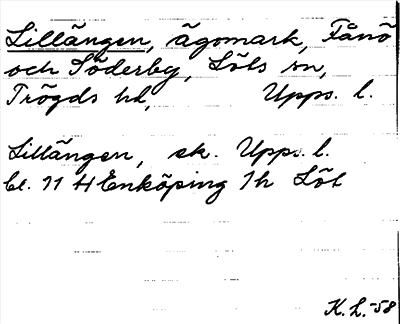 Lillängen, ägomark, Fånö
och Söderby, Löts sn,
Trögds hd, Upps. l.
Lillängen, ek. Upps. l.
bl. 11 H Enköping 1h Löt
K.L.-58